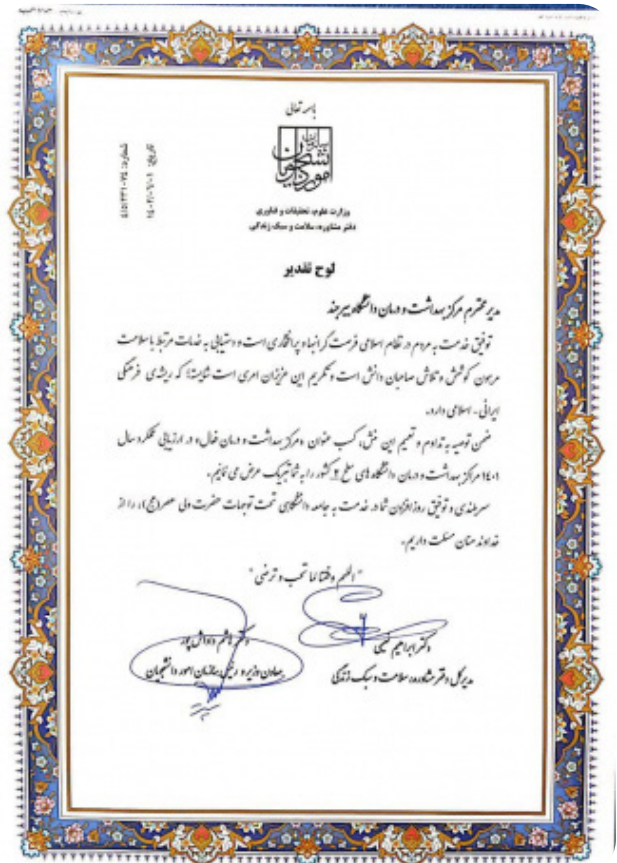 باسمه تعالی
سازمان امور دانشجویان
وزارت علوم، تحقیقات و فناوری
دفتر مشاوره، سلامت و سبک زندگی
تاریخ: ۱۴۰۲/۰۶/۰۱
لوح تقدیر
مدیر محترم مرکز بهداشت و درمان دانشگاه بیرجند
توفیق خدمت به مردم در نظام اسلامی فرصت گرانبها و پرافتخاری است و دستیابی به خدمات مرتبط با سلامت
مرهون کوشش و تلاش صاحبان دانش است و تکریم این عزیزان امری است شایسته؛ که ریشه‌ی فرهنگی
ایرانی - اسلامی دارد.
ضمن توصیه به تداوم و تعمیم این منش، کسب عنوان «مرکز بهداشت و درمان فعال» در ارزیابی عملکرد سال
۱۴۰۱ مراکز بهداشت و درمان دانشگاه های سطح ۲ کشور را به شما تبریک عرض می نمایم.
سربلندی و توفیق روزافزون شما در خدمت به جامعه دانشگاهی تحت توجهات حضرت ولی عصر(عج)، را از
خداوند منان مسئلت داریم.
"اللهم وفقنا لما تحب و ترضی"
دکتر ابراهیم
مدیرکل دفتر مشاوره، سلامت و سبک زندگی
دکتر هاشم داداش پور
معاون وزیر و رئیس سازمان امور دانشجویان